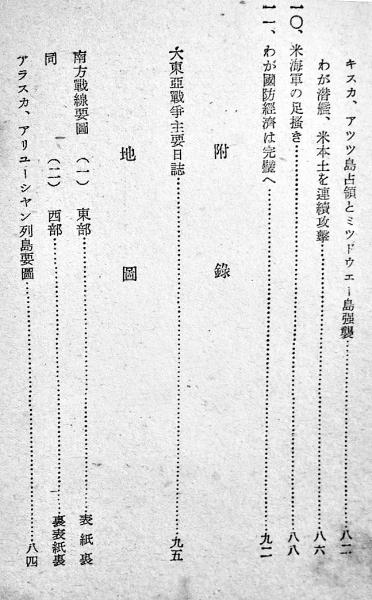 キスカ、アツツ島占領とミツドウエー島强襲……八二
わが潜艦、米本士を連續攻擊……八六
一〇、米海軍の足掻き……八八
一一、わが國防經濟は完璧へ……九二
附錄
大東亞戰爭主要日誌……九五
地圖
南方戰線要圖（一）東部……表紙裏
同（二）西部……裏表紙裏
アラスカ、アリユーシヤン列島要圖……八四